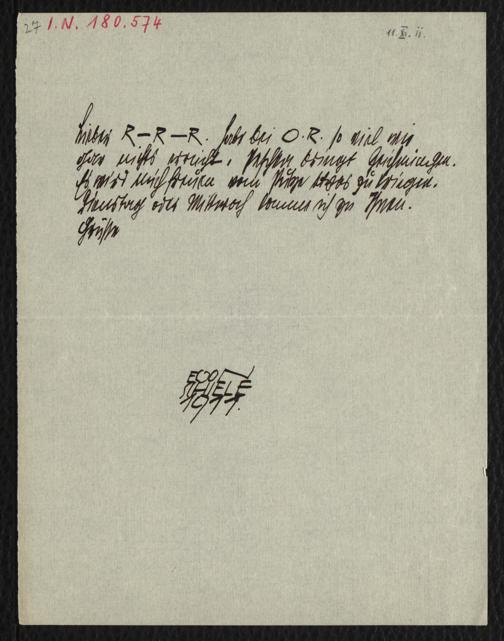 27 I.N. 180.574
11. XI. 11.
Lieber R–R–R. habe bei O.R. so viel wie
gar nichts erreicht. bringt Zeichnungen.
Es wird mich freuen vom etwas zu kriegen.
Dienstag oder Mittwoch komme ich zu Ihnen.
Grüße
EGON
SCHIELE
1911.